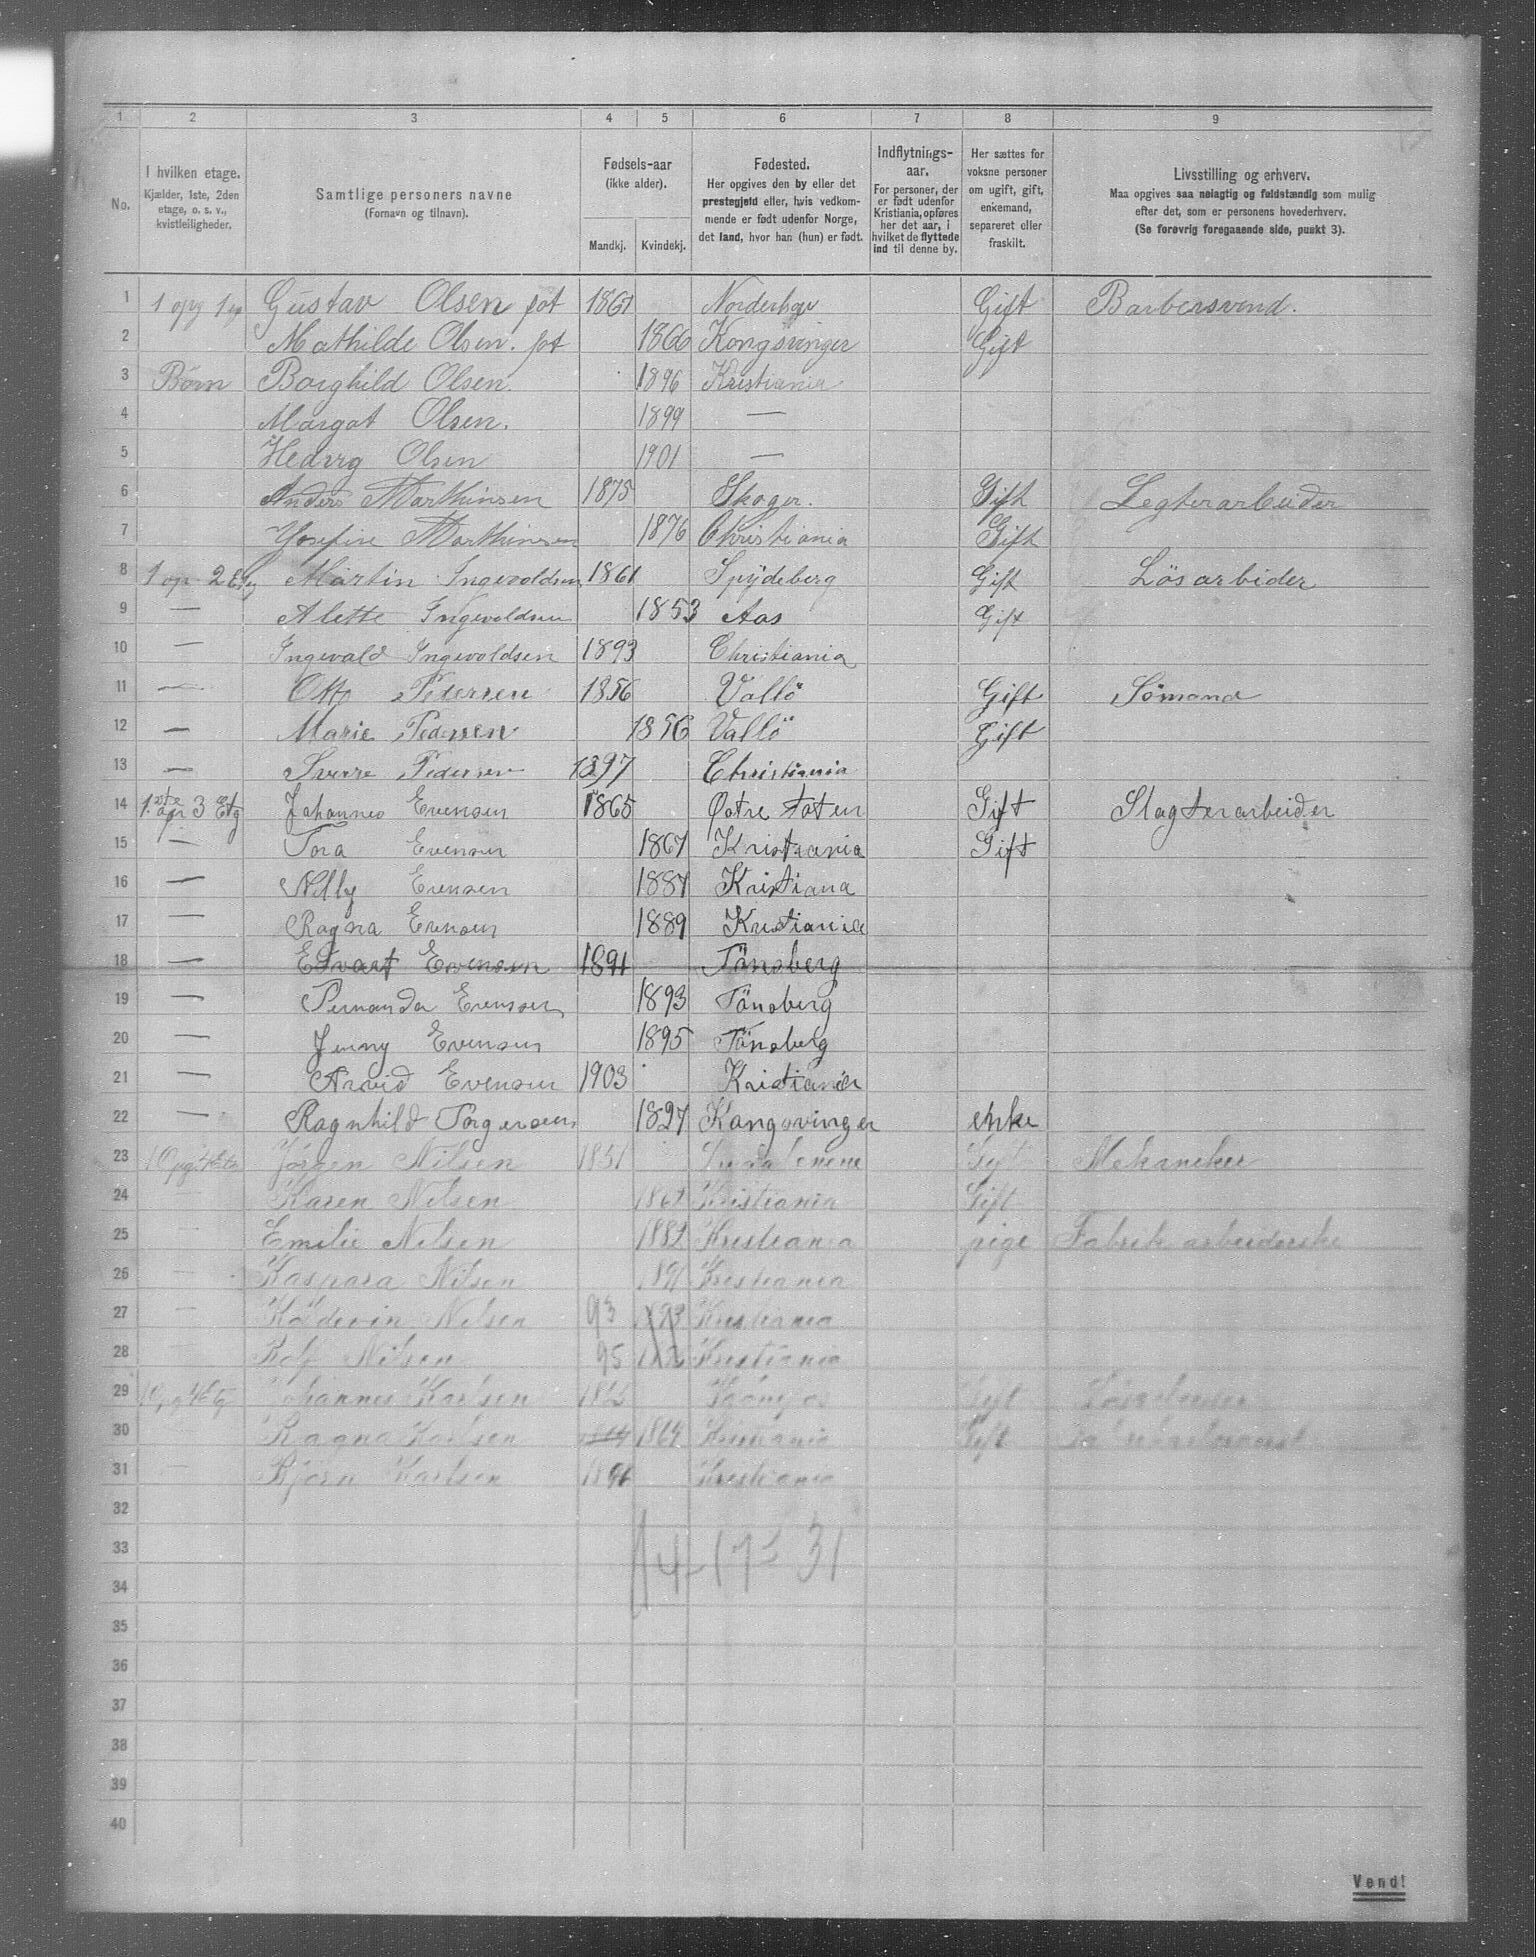 1 2 3 4 5 6 7 8 9
No.
I hvilken etage.
Kjælder, 1ste, 2den
etage, o. s. v.,
kvistleiligheder.
Samtlige personers navne
(Fornavn og tilnavn).
Fødsels-aar
(ikke alder).
Mandkj. Kvindekj.
Fødested.
Her opgives den by eller det
prestegjeld eller, hvis vedkom-
mende er født udenfor Norge,
det land, hvor han (hun) er født.
Indflytnings-
aar.
For personer, der
er født udenfor
Kristiania, opføres
her det aar, i
hvilket de flyttede
ind til denne by.
Her sættes for
voksne personer
om ugift, gift,
enkemand,
separeret eller
fraskilt.
Livsstilling og erhverv.
Maa opgives saa nøiagtig og fuldstændig som mulig
efter det, som er personens hovederhverv.
(Se forøvrig foregaaende side, punkt 3).
1 1 opg 1 Gustav Olsen fot 1861 Norderhov Gift Barbersvend.
2 Mathilde Olsen. fot 1866 Kongsvinger Gift
3 Børn Borghild Olsen. 1896 Kristiania
4 Margot Olsen. 1899 —
5 Hedvig Olsen 1901 —
6 Anders Marthinsen 1875 Skoger. Gift Legterarbeider
7 Josefine Marthinsen 1876 Christiania Gift
8 1 op 2 Etg Martin Ingevoldsen 1861 Spydeberg Gift Lösarbider
9 — Alette Ingevoldsen 1853 Aas Gift
10 — Ingevald Ingevoldsen 1893 Christiania
11 — Otto Pedersen 1856 Vallö Gift Sömand
12 — Marie Pedersen 1856 Vallö Gift
13 — Sverre Pedersen 1897 Christiania
14 1.ste op 3 Etg Johannes Evensen 1865 Østre Toten Gift Slagterarbeider
15 — Tora Evensen 1867 Kristiania Gift
16 — Nelly Evensen 1887 Kristiana
17 — Ragna Evensen 1889 Kristiania
18 — Edvart Evensen 1891 Tönsberg
19 — Fernanda Evensen 1893 Tönsberg
20 — Jenny Evensen 1895 Tönsberg
21 — Arvid Evensen 1903 Kristiania
22 — Ragnhild Torgersen 1827 Kongsvinger enke
23 1 Opg 4 Etg Jörgen Nilsen 1851 Gift Mekaniker
24 Karen Nilsen 1861 Kristiania Gift
25 Emilie Nilsen 1882 Kristiania pige Fabrik arbeiderske
26 Kaspara Nilsen 1891 Kristiania
27 — Nilsen 93 Kristiania
28 Rolf Nilsen 95 Kristiania
29 Johannes Karlsen Gift
30 Ragna Karlsen 1864 Kristiania Gift
31 Bjørn Karlsen Kristiania
32
33 14 17 = 31
34
35
36
37
38
39
40
Vend!